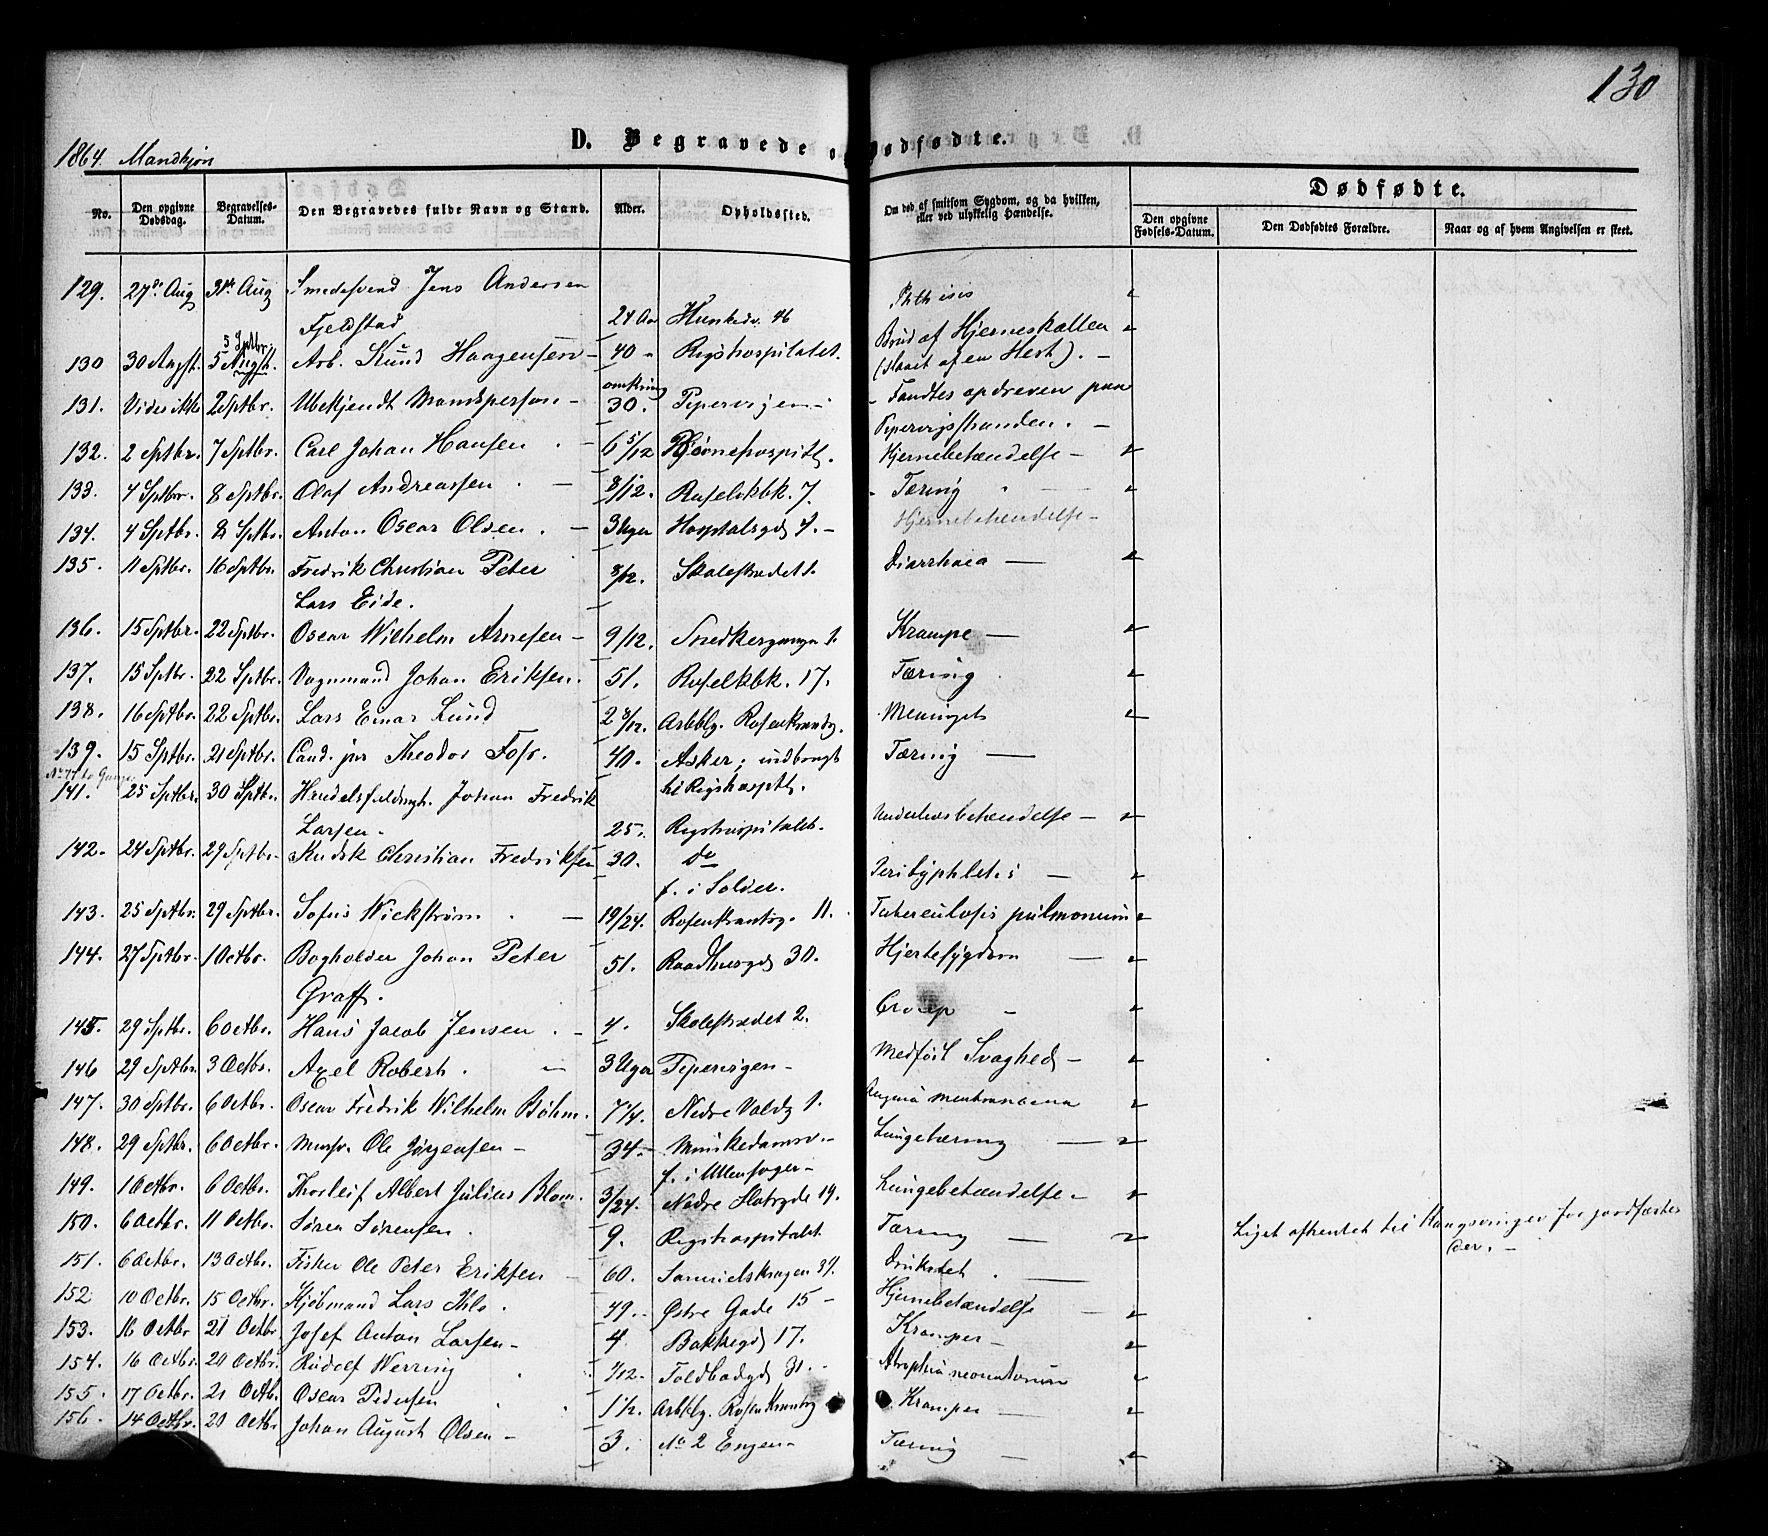 130
1864. Mandkjøn
D. Begravede o Dødfødte.
No. Den opgivne Dødsdag. Begravelses-Datum. Den Begravedes fulde Navn og Stand. Alder. Opholdssted. Om død af smitsom Sygdom, og da hvilken, eller ved ulykkelig Hændelse. Dødfødte.
Den opgivne Fødsels-Datum. Den Dødfødtes Forældre. Naar og af hvem Angivelsen er skeet.
129. 27de Aug 31te Aug Smedesvend Jens Andersen Phthisis
Fjeldstad 24 Aar Munkedv. 46
5 Sptbr.
130 30 Augst. 5 Augst. Arb. Knud Haagensen - 40 - Rigshospitalet. Brud af Hjerneskallen
(slaaet af en Hest). -
131. Vides ikke 2 Sptbr. Ubekjendt Mandsperson - omkring 30. Pipervigen - Fandtes opdreven paa
Pipervigstranden. -
132. 2 Sptbr. 7 Sptbr. Carl Johan Hansen. - 6 5/12 Børnehospitl. Hjernebetændelse -
133. 4 Sptbr. 8 Sptbr. Olaf Andreassen. - 8/12. Ruselökbk. 7. Tæring
134. 4 Sptbr. 8 Sptbr. Anton Oscar Olsen. - 3 Uger Hospitalsgd 4. - Hjernebetændelse -
135. 11 Sptbr. 16 Sptbr. Fredrik Christian Peter 8/12. Skolestrædet 1. Diarrhoea -
Lars Eide.
136. 15 Sptbr. 22 Sptbr. Oscar Wilhelm Arnesen - 9/12. Snedkergangen 1. Krampe -
137. 15 Sptbr. 22 Sptbr. Vognmand Johan Eriksen. 51. Ruselökbk. 17. Tæring.
138. 16 Sptbr. 22 Sptbr. Lars Einar Lund 2 8/12. Arbblg. Rosenkrandzg. Meningit
139. 15 Sptbr. 21 Sptbr. Cand. jur Theodor Foss. 40. Asker; indbragt Tæring -
til Rigshospitl.
141. 25 Sptbr. 30 Sptbr. Handelsfuldmgt. Johan Fredrik
Larsen - 25. Rigshospitalet. Underlivsbetændelse -
142. 24 Sptbr. 29 Sptbr. Kudsk Christian Fredriksen 30. do
f. i Solør. Perityphlitis -
143. 25 Sptbr. 29 Sptbr. Sofus Wickstrøm. - 19/24. Rosenkrantzg. 11. Tuberculosis pulmonum
144. 27 Sptbr. 1 Octbr. Bogholder Johan Peter 51. Raadhusgd 30. Hjertesygdom -
Graff.
145. 29 Sptbr. 6 Octbr. Hans Jacob Jensen. - 4. Skolestrædet 2. Croup -
146 29 Sptbr. 3 Octbr. Axel Robert. - 3 Uger Pipervigen - Medfød Svaghed -
147. 30 Sptbr. 6 Octbr. Oscar Fredrik Wilhelm Bøhm. 7 1/4. Nedre Voldg 1. Angina membranacea
148. 29 Sptbr. 6 Octbr. Mursv. Ole Jørgensen - 34 - Munkedamsv. - Lungetæring -
f. i Ullensager -
149. 1 Octbr. 6 Octbr. Thorleif Albert Julius Blom. 3/24. Nedre Slotsgde 19. Lungebetændelse -
150. 6 Octbr. 11 Octbr. Søren Sørensen. 9. Rigshospitalet Tæring - Liget afhentet til Kongsvinger for jordfæstes
der. -
151. 6 Octbr. 13 Octbr. Fisker Ole Peter Eriksen - 60. Samuelskragen 37. Druknet. -
152 10 Octbr. 15 Octbr. Kjøbmand Lars Ihle. 49. - Østre Gade 15 - Hjernebetændelse -
153. 16 Octbr 21 Octbr. Josef Anton Larsen - 4. Bakkegd 17. Kramper -
154. 16 Octbr. 20 Octbr. Rudolf Werring. 1/12. Toldbodgd 31. - Atrophia neonatorum
155. 17 Octbr. 21 Octb. Oscar Pedersen. 1 1/2. Arbblg. Rosenkrantzg Kramper -
156. 14 Octbr. 20 Octbr. Johan August Olsen - 3. No 2 Engen - Tæring -